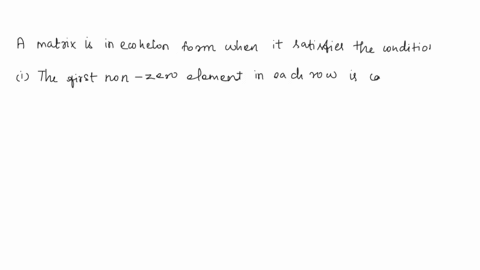 A matrix is in ecohelon form when it satisfies the condition
(i) The first non-zero element in each row is co